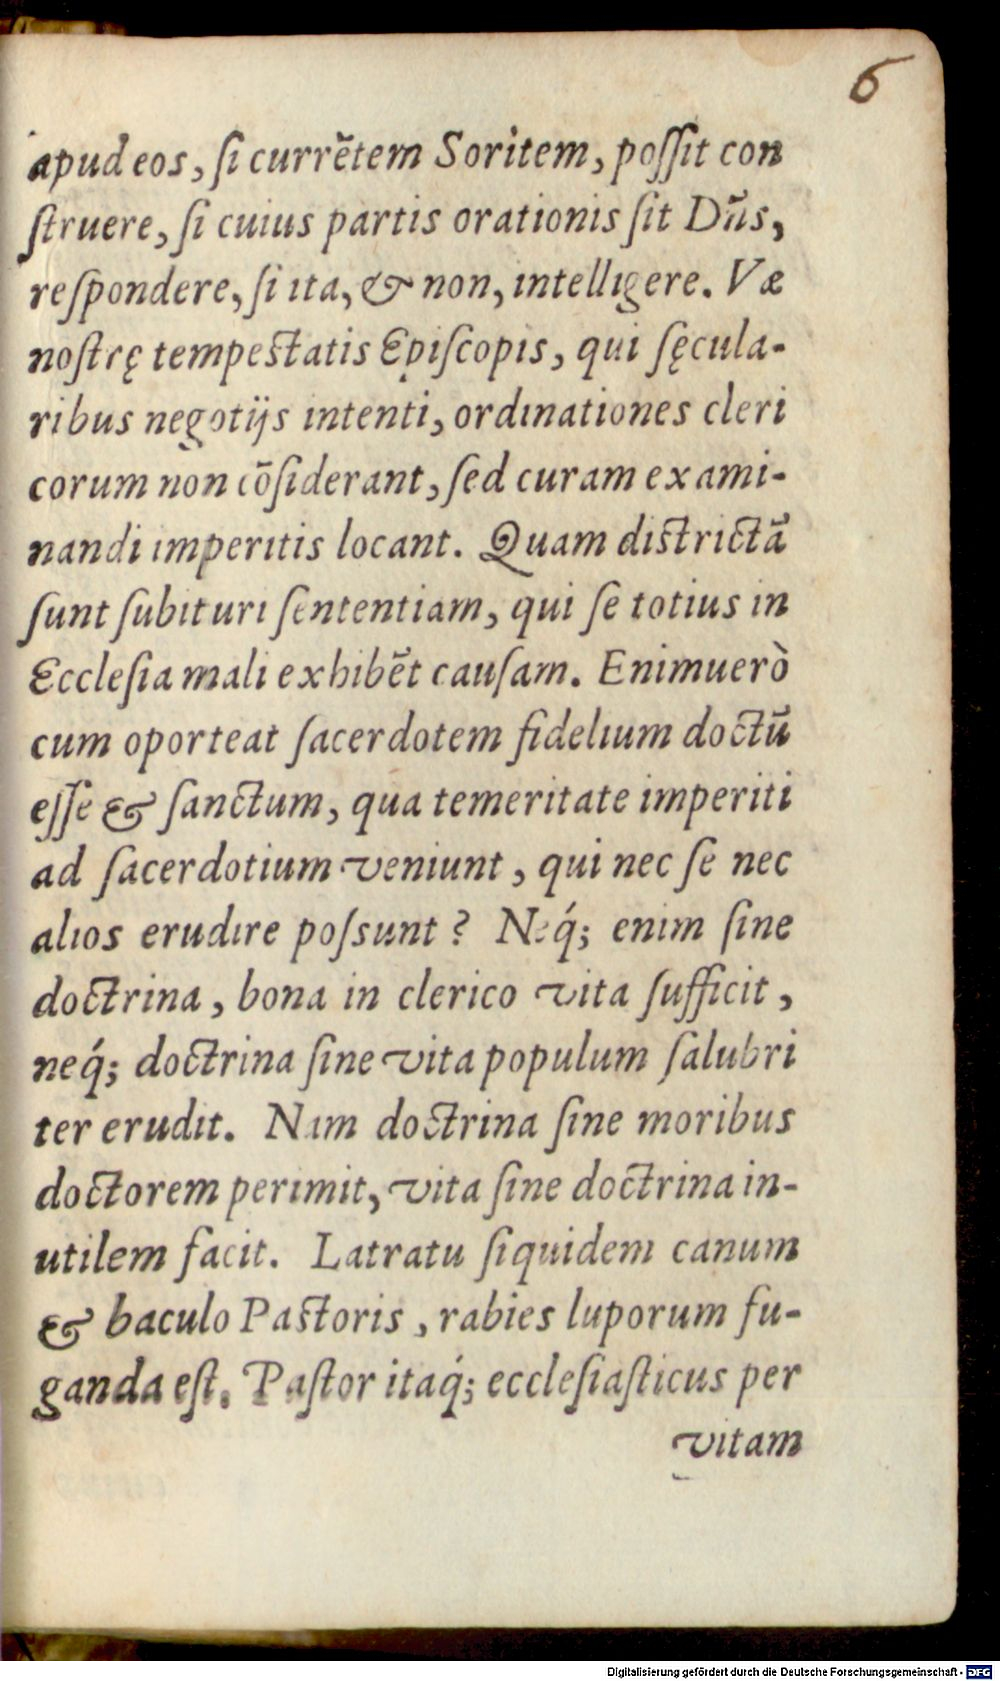 6
apud eos, ſi currētem Soritem, poſſit con
ſtruere, ſi cuius partis orationis ſit Dñs,
reſpondere, ſi ita, & non, intelligere. Væ
noſtrę tempeſtatis Epiſcopis, qui ſęcula-
ribus negotijs intenti, ordinationes cleri
corum non cōſiderant, ſed curam exami-
nandi imperitis locant. Quam diſtrictā
ſunt ſubituri ſententiam, qui ſe totius in
Eccleſia mali exhibēt cauſam. Enimuerò
cum oporteat ſacerdotem fidelium doctū
eſſe & ſanctum, qua temeritate imperiti
ad ſacerdotium veniunt, qui nec ſe nec
alios erudire poſsunt? Neq́; enim ſine
doctrina, bona in clerico vita ſufficit,
neq́; doctrina ſine vita populum ſalubri
ter erudit. Nam doctrina ſine moribus
doctorem perimit, vita ſine doctrina in-
utilem facit. Latratu ſiquidem canum
& baculo Paſtoris, rabies luporum fu-
ganda eſt. Paſtor itaq́; eccleſiaſticus per
vitam
Digitalisierung gefördert durch die Deutsche Forschungsgemeinschaft - DFG